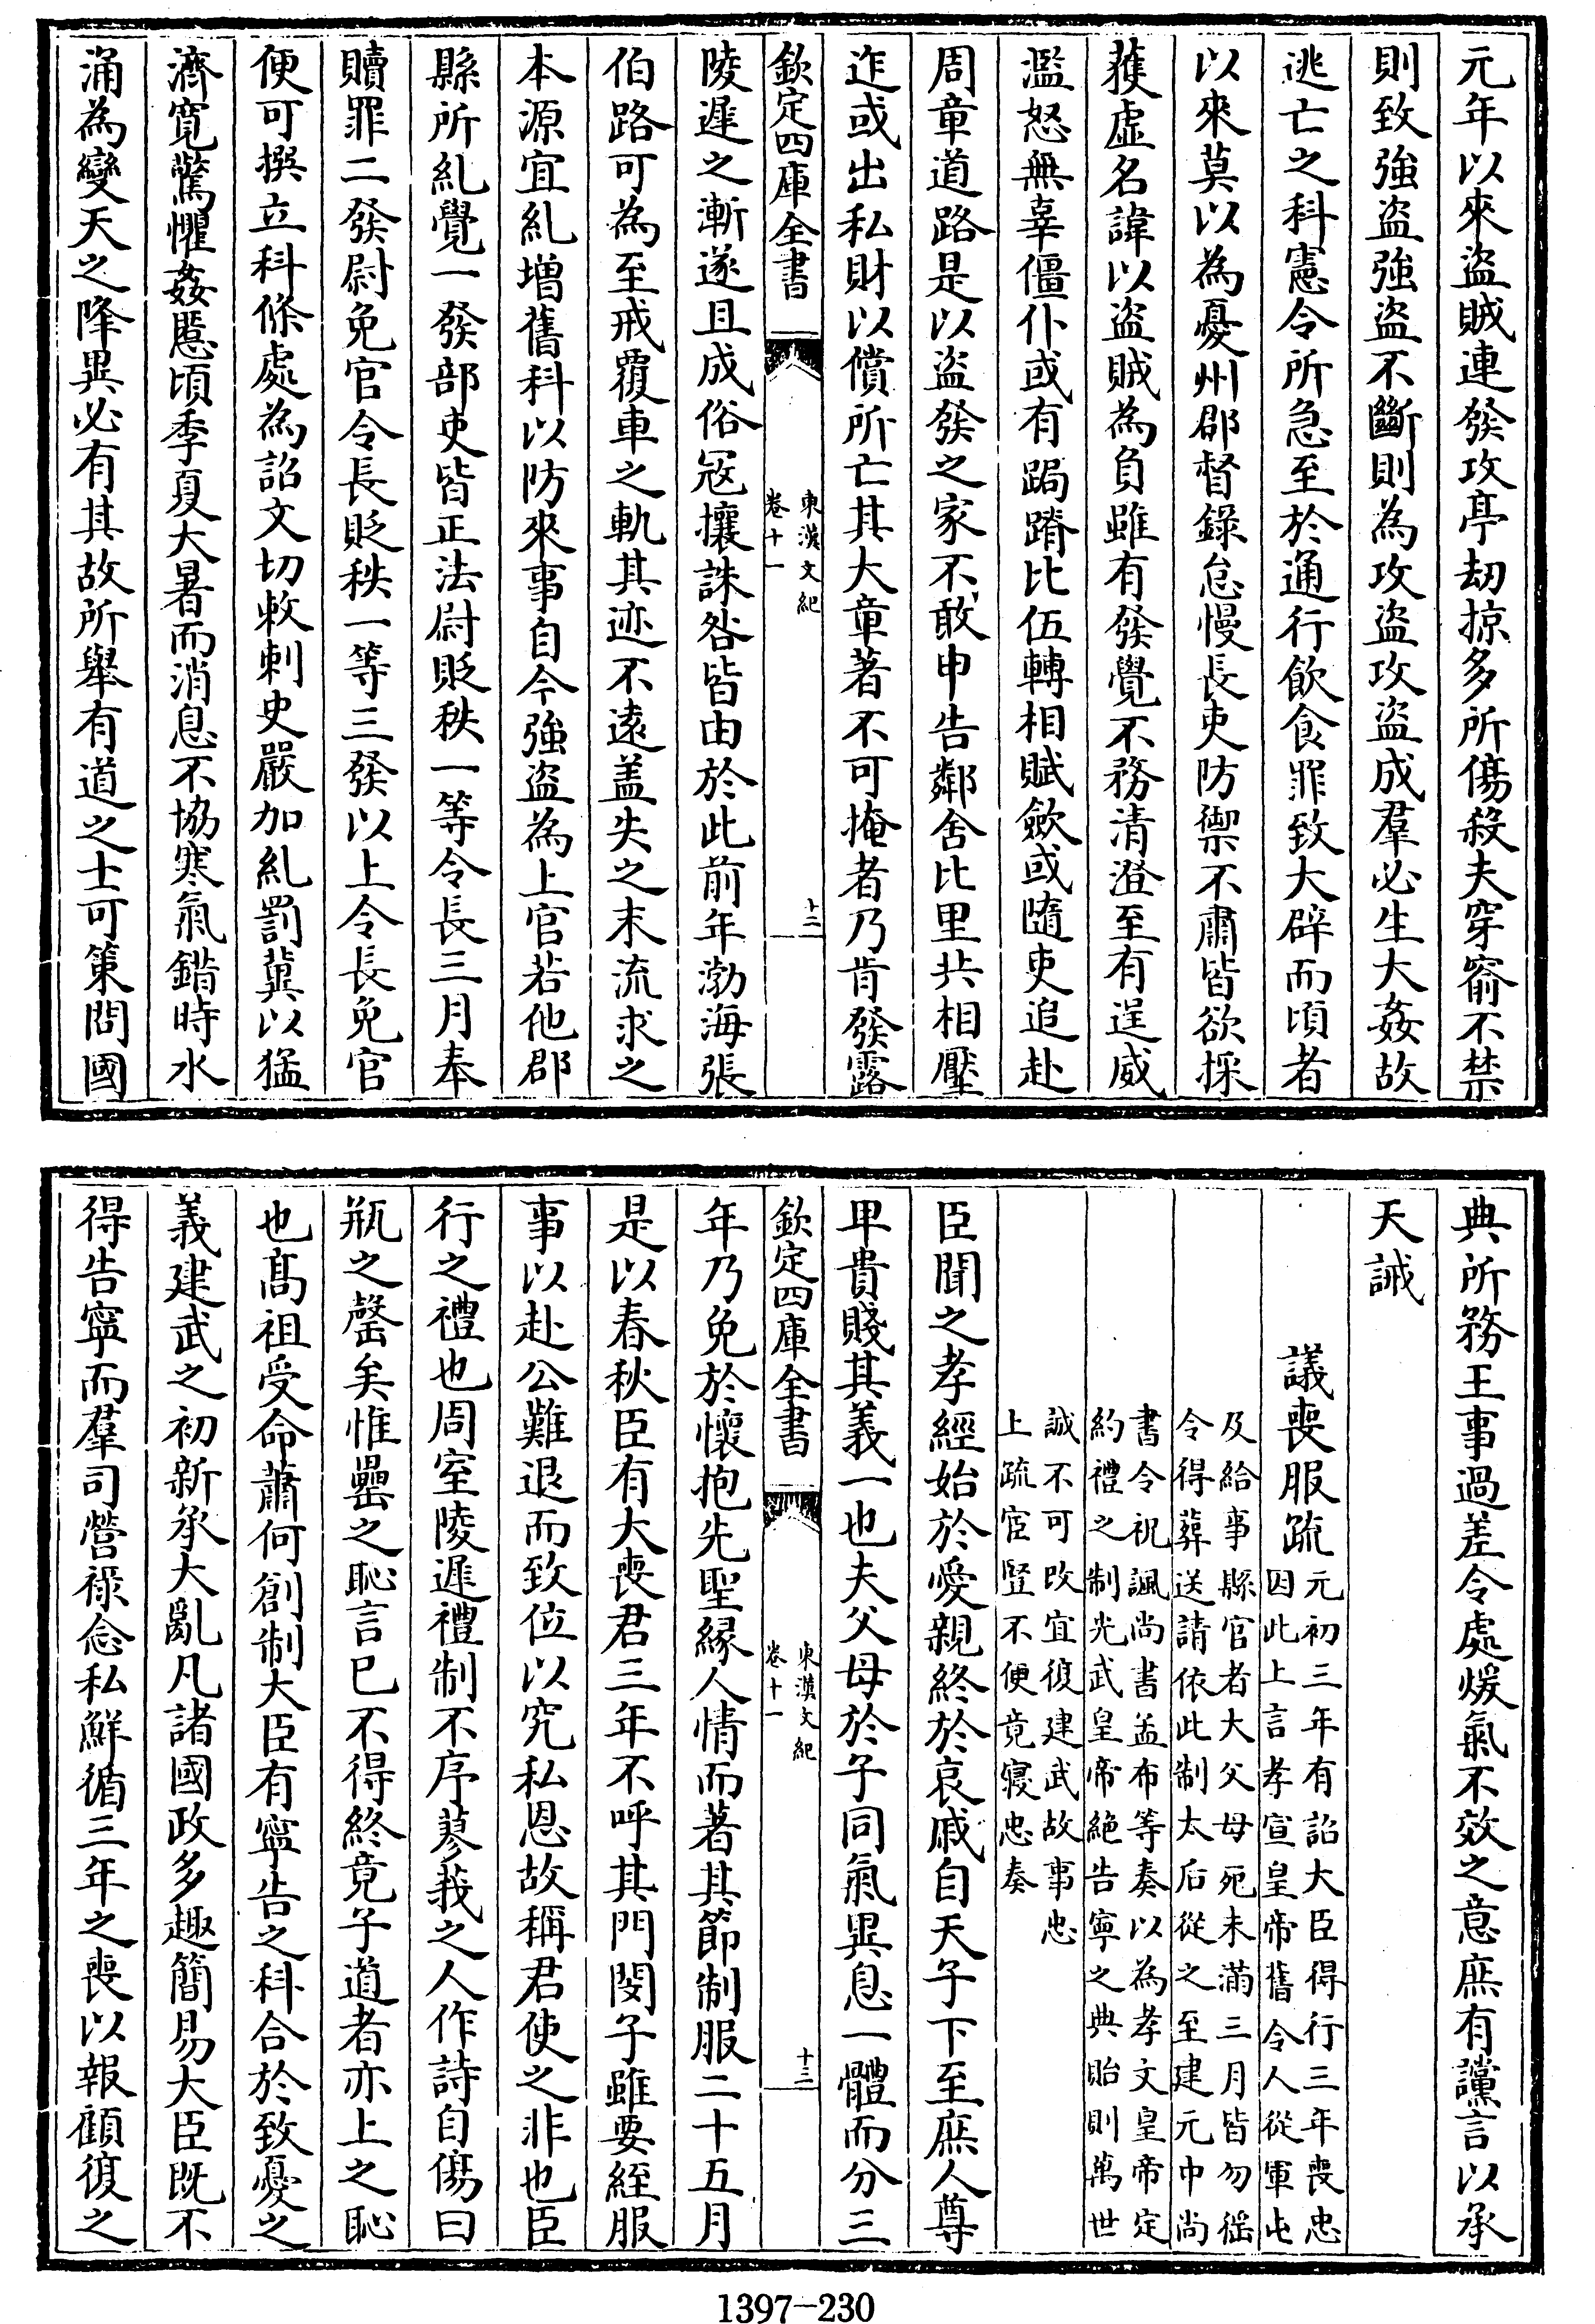 元年以來盜賊連發攻亭劫掠多所傷殺夫穿窬不禁
則致強盜強盜不斷則為攻盜攻盜成羣必生大姦故
逃亡之科憲令所急至於通行飲食罪致大辟而頃者
以來莫以為憂州郡督錄怠慢長吏防禦不肅皆欲採
獲虛名諱以盜賊為負雖有發覺不務清澄至有逞威
濫怒無辜僵仆或有跼蹐比伍轉相賦歛或隨吏追赴
周章道路是以盜發之家不敢申告鄰舍比里共相壓
迮或出私財以償所亡其大章著不可掩者乃肯發露
欽定四庫全書
東漢文紀
卷十一
十二
陵遲之漸遂且成俗冦攘誅咎皆由於此前年渤海張
伯路可為至戒覆車之軌其迹不遠盖失之末流求之
本源宜糺增舊科以防來事自今強盜為上官若他郡
縣所糺覺一發部吏皆正法尉貶秩一等令長三月奉
贖罪二發尉免官令長貶秩一等三發以上令長免官
便可撰立科條處為詔文切敕刺史嚴加糺罰冀以猛
濟寬驚懼姦慝頃季夏大暑而消息不協寒氣錯時水
涌為變天之降異必有其故所舉有道之士可策問國
典所務王事過差令處煖氣不效之意庶有讜言以承
天誡
議喪服疏
元初三年有詔大臣得行三年喪忠
因此上言孝宣皇帝舊令人從軍屯
及給事縣官者大父母死未滿三月皆勿徭
令得葬送請依此制太后從之至建元中尚
書令祝諷尚書孟布等奏以為孝文皇帝定
約禮之制光武皇帝絕告寧之典貽則萬世
誠不可改宜復建武故事忠
上疏宦豎不便竟寢忠奏
臣聞之孝經始於愛親終於哀戚自天子下至庶人尊
卑貴賤其義一也夫父母於子同氣異息一體而分三
欽定四庫全書
東漢文紀
卷十一
十三
年乃免於懷抱先聖緣人情而著其節制服二十五月
是以春秋臣有大喪君三年不呼其門閔子雖要絰服
事以赴公難退而致位以究私恩故稱君使之非也臣
行之禮也周室陵遲禮制不序蓼莪之人作詩自傷曰
瓶之罄矣惟罍之恥言已不得終竟子道者亦上之恥
也高祖受命蕭何創制大臣有寧告之科合於致憂之
義建武之初新承大亂凡諸國政多趣簡易大臣既不
得告寧而羣司營祿念私鮮循三年之喪以報顧復之
1397-230